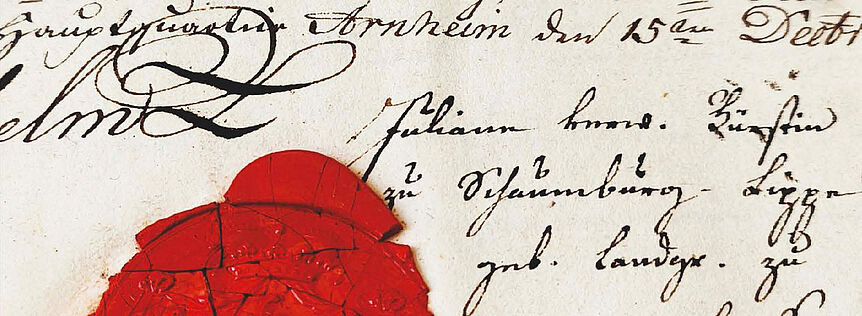 Hauptquartier Arnheim den 15ten Decbr
elm
Juliane verw. Fürstin
zu Schaumburg-Lippe
geb. Landgr. zu